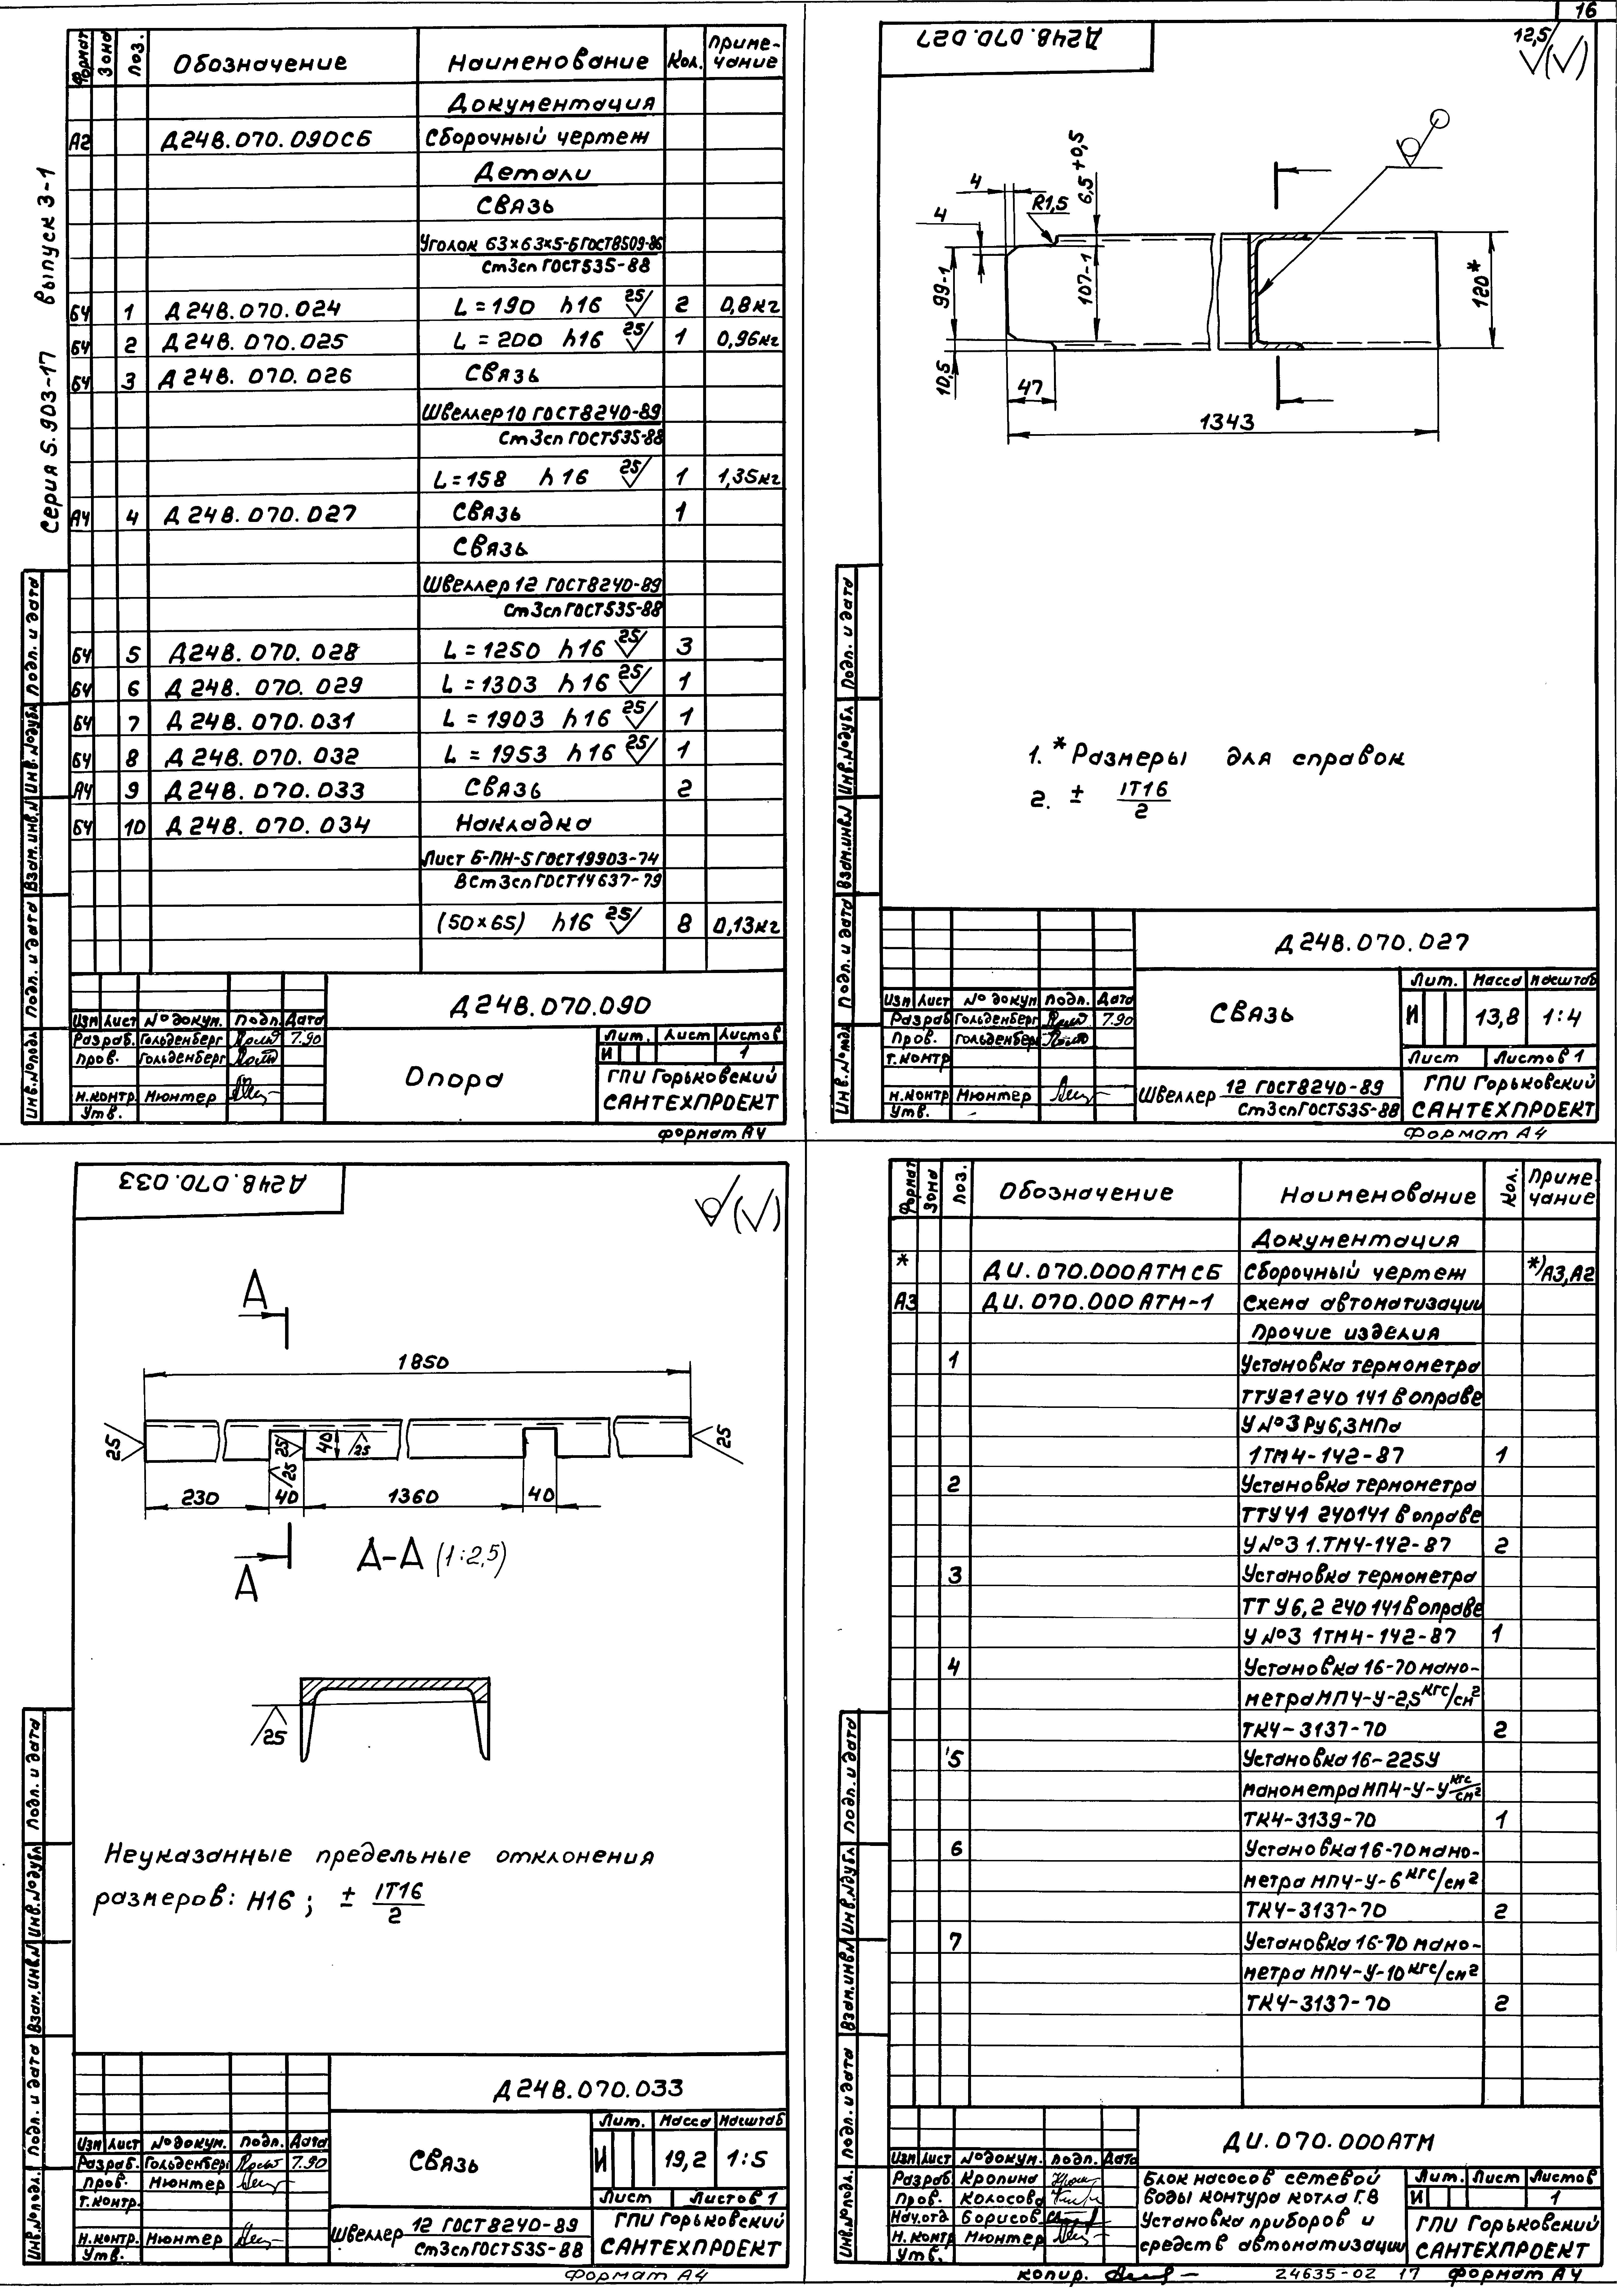 16
Серия 5.903-17 выпуск 3-1
Формат Зона Поз. Обозначение Наименование Кол. Приме-
чание
Документация
А2 Д24В.070.090СБ Сборочный чертеж
Детали
Связь
Уголок 63×63×5-Б ГОСТ8509-86
Ст3сп ГОСТ535-88
БЧ 1 Д24В.070.024 L=190 h16 25 2 0,8кг
БЧ 2 Д24В.070.025 L=200 h16 25 1 0,96кг
БЧ 3 Д24В.070.026 Связь
Швеллер 10 ГОСТ8240-89
Ст3сп ГОСТ535-88
L=158 h16 25 1 1,35кг
А4 4 Д24В.070.027 Связь 1
Связь
Швеллер 12 ГОСТ8240-89
Ст3сп ГОСТ535-88
БЧ 5 Д24В.070.028 L=1250 h16 25 3
БЧ 6 Д24В.070.029 L=1303 h16 25 1
БЧ 7 Д24В.070.031 L=1903 h16 25 1
БЧ 8 Д24В.070.032 L=1953 h16 25 1
А4 9 Д24В.070.033 Связь 2
БЧ 10 Д24В.070.034 Накладка
Лист Б-ПН-5 ГОСТ19903-74
ВСт3сп ГОСТ14637-79
(50×65) h16 25 8 0,13кг
Подп. и дата
Инв.№дубл.
Взам.инв.№
Подп. и дата
Инв.№подл.
Д24В.070.090
Изм Лист №докум. Подп. Дата
Разраб. Гольденберг 7.90
Пров. Гольденберг
Н.контр. Мюнтер
Утв.
Опора
Лит. Лист Листов
И 1
ГПИ Горьковский
САНТЕХПРОЕКТ
Формат А4
Д24В.070.027
12,5
4
4
R1,5
6,5+0,5
99-1
107-1
120*
10,5
47
1343
1. *Размеры для справок
2. ± IT16
2
Подп. и дата
Инв.№дубл.
Взам.инв.№
Подп. и дата
Инв.№подл.
Д24В.070.027
Изм Лист №докум Подп. Дата
Разраб Гольденберг 7.90
Пров. Гольденберг
Т.контр
Н.контр. Мюнтер
Утв.
Связь
Лит. Масса Масштаб
И 13,8 1:4
Лист Листов 1
Швеллер 12 ГОСТ8240-89
Ст3сп ГОСТ535-88
ГПИ Горьковский
САНТЕХПРОЕКТ
Формат А4
Д24В.070.033
А
1850
25
25
40
25
25
25
230 40 1360 40
А
А-А (1:2,5)
25
Неуказанные предельные отклонения
размеров: H16; ± IT16
2
Подп. и дата
Инв.№дубл.
Взам.инв.№
Подп. и дата
Инв.№подл.
Д24В.070.033
Изм Лист №докум. Подп. Дата
Разраб. Гольденберг 7.90
Пров. Мюнтер
Т.контр.
Н.контр. Мюнтер
Утв.
Связь
Лит. Масса Масштаб
И 19,2 1:5
Лист Листов 1
Швеллер 12 ГОСТ8240-89
Ст3сп ГОСТ535-88
ГПИ Горьковский
САНТЕХПРОЕКТ
Формат А4
Формат Зона Поз. Обозначение Наименование Кол. Приме-
чание
Документация
* ДИ.070.000АТМСБ Сборочный чертеж *)А3,А2
А3 ДИ.070.000 АТМ-1 Схема автоматизации
Прочие изделия
1 Установка термометра
ТТУ21 240 141 в оправе
У №3 Ру6,3МПа
1ТМ4-142-87 1
2 Установка термометра
ТТУ41 240141 в оправе
У №3 1.ТМ4-142-87 2
3 Установка термометра
ТТ У6,2 240 141 в оправе
У №3 1ТМ4-142-87 1
4 Установка 16-70 мано-
метра МП4-У-2,5 кгс/см2
ТК4-3137-70 2
5 Установка 16-225У
манометра МП4-У-У кгс/см2
ТК4-3139-70 1
6 Установка 16-70 мано-
метра МП4-У-6 кгс/см2
ТК4-3137-70 2
7 Установка 16-70 мано-
метра МП4-У-10 кгс/см2
ТК4-3137-70 2
Подп. и дата
Инв.№дубл.
Взам.инв.№
Подп. и дата
Инв.№подл.
ДИ.070.000АТМ
Изм Лист №докум. подп. Дата
Разраб Кропина
Пров. Колосова
Нач.отд Борисов
Н.контр Мюнтер
Утв.
Блок насосов сетевой
воды контура котла Г.В
Установка приборов и
средств автоматизации
Лит. Лист Листов
И 1
ГПИ Горьковский
САНТЕХПРОЕКТ
копир. 24635-02 17 Формат А4